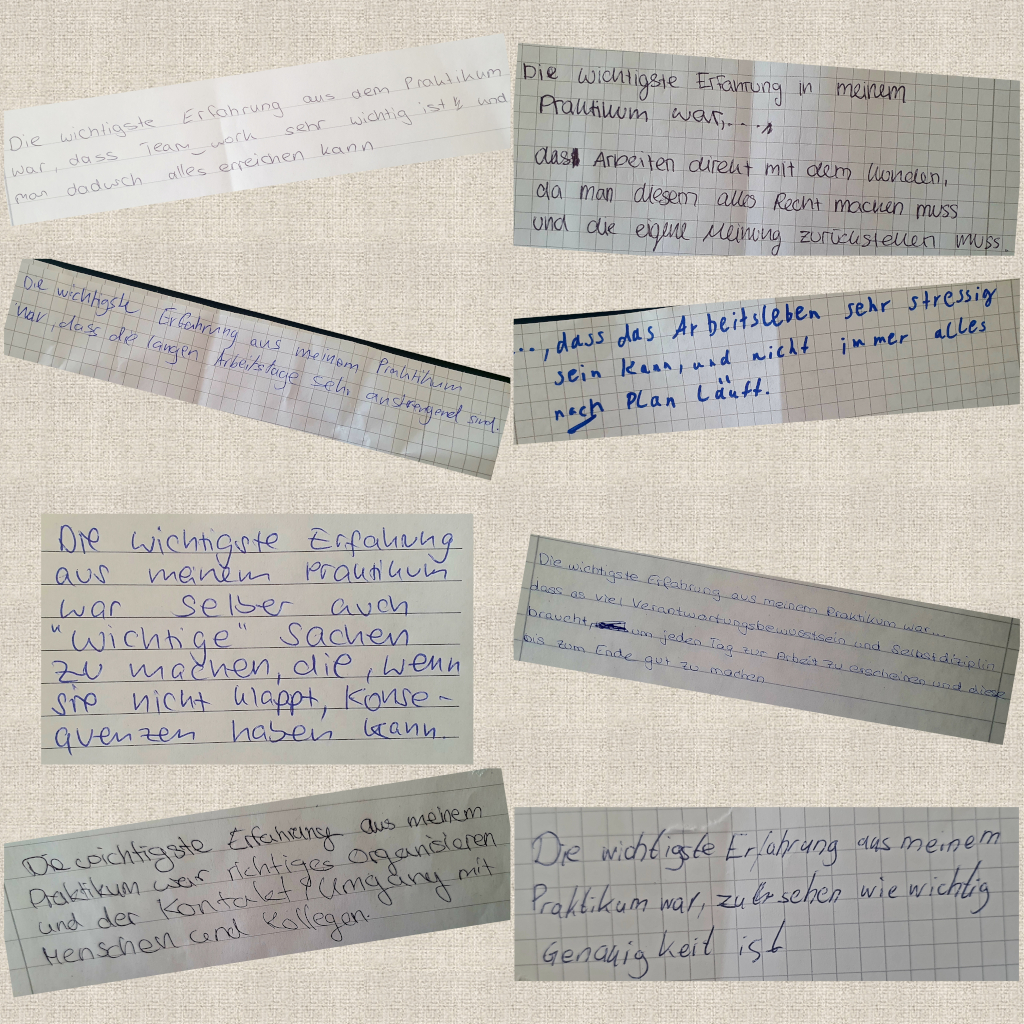 Die wichtigste Erfahrung aus dem Praktikum
war, dass Team work sehr wichtig ist und
man dadurch alles erreichen kann
Die wichtigste Erfahrung in meinem
Praktikum war,....,
das Arbeiten direkt mit dem Kunden,
da man diesem alles Recht machen muss
und die eigene Meinung zurückstellen muss.
Die wichtigste Erfahrung aus meinem Praktikum
war, dass die langen Arbeitstage sehr anstrengend sind.
..., dass das Arbeitsleben sehr stressig
sein kann, und nicht immer alles
nach Plan Läuft.
Die wichtigste Erfahrung
aus meinem Praktikum
war selber auch
"wichtige" Sachen
zu machen, die, wenn
sie nicht klappt, Konse-
quenzen haben kann.
Die wichtigste Erfahrung aus meinem Praktikum war...
dass es viel Verantwortungsbewusstsein und Selbstdiziplin
braucht, um jeden Tag zur Arbeit zu erscheinen und diese
bis zum Ende gut zu machen
Die wichtigste Erfahrung aus meinem
Praktikum war richtiges organisieren
und der Kontakt & Umgang mit
Menschen und Kollegen.
Die wichtigste Erfahrung aus meinem
Praktikum war, zu sehen wie wichtig
Genauigkeit ist